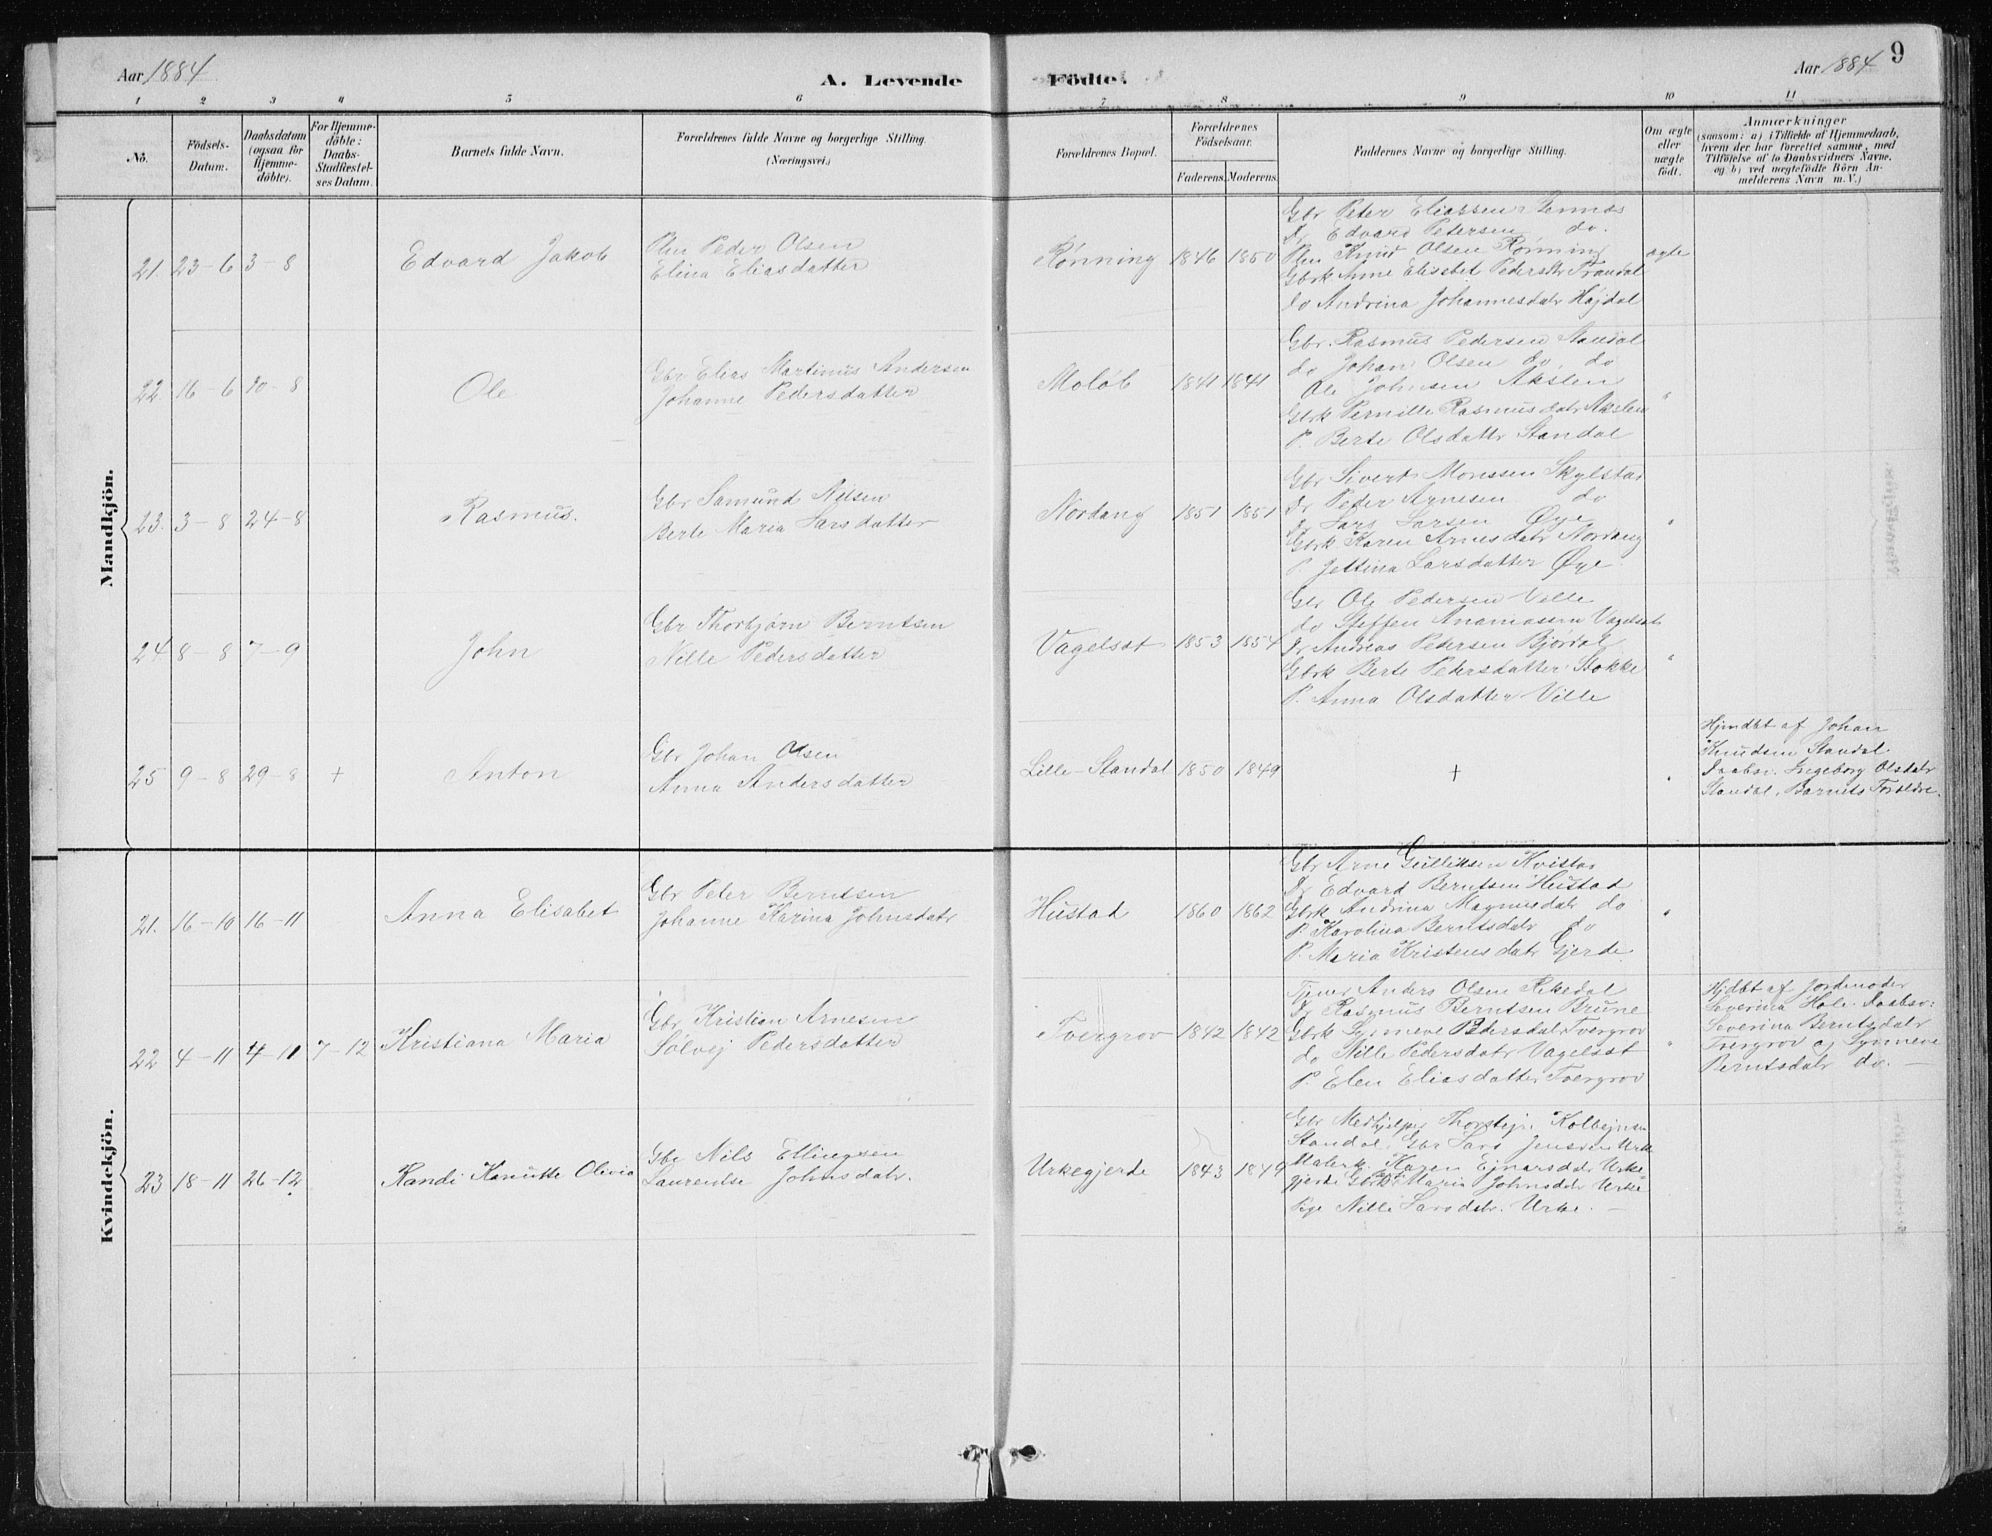 Aar 1884
A. Levende
Födte.
Aar 1884
9
1 2 3 4 5 6 7 8 9 10 11
No.
Födsels-
Datum.
Daabsdatum
(ogsaa for
Hjemme-
döbte).
For Hjemme-
döbte:
Daabs-
Stadfæstel-
ses Datum.
Barnets fulde Navn.
Forældrenes fulde Navne og borgerlige Stilling.
(Næringsvei.)
Forældrenes Bopæl.
Forældrenes
Födselsaar.
Faderens. Moderens.
Faddernes Navne og borgerlige Stilling.
Om ægte
eller
uægte
födt.
Anmærkninger
(saasom: a) i Tilfælde af Hjemmedaab,
hvem der har forrettet samme, med
Tilföielse af to Daabsvidners Navne,
og b) ved uægtefödte Börn An-
melderens Navn m. V.)
Mandkjön.
21. 23-6 3-8
Edvard Jakob
Peder Olsen
Elina Eliasdatter
Rønning 1846 1850
Gbr Peter Eliassen
Dr Edvard Petersen do.
Knud Olsen Rønning
Gbrk Anne Elisabet Pedersdtr Trandal
do Andrina Johannesdatr Højdal
ægte
22 16-6 10-8
Ole
Gbr Elias Martinus Andersen
Johanne Pedersdatter
Moløb 1841 1841
Gbr. Rasmus Pedersen Standal
do Johan Olsen do do
Ole Johnsen Akslen
Gbrk Pernille Rasmusdatr Akslen
P. Berte Olsdattr Standal
"
23. 3-8 24-8
Rasmus.
Gbr Samund Nilsen
Berte Maria Larsdatter
Nordang 1851 1851
Gbr Sivert Monssen Skylstad
Dr Peder Arnesen do
Dr Lars Larsen Øye
Gbrk Karen Arnesdatr Nordang
P. Jettina Larsdatter Øye
"
24 8-8 7-9
John
Gbr Thorbjørn Berntsen
Nille Pedersdatter
Vagelsæt 1853 1854
Gbr Ole Pedersen Ville
do Steffen Ananiassen Vagelsæt
Dr Andreas Pedersen Bjordal
Gbrk Berte Petersdatter Stokke
P. Anna Olsdatter Ville
"
25 9-8 29-8 +
Anton
Gbr Johan Olsen
Anna Andersdatter
Lille-Standal 1850 1849
+
"
Hjmdbt af Johan
Knudsen Standal.
Daabsv. Ingeborg Olsdatr
Standal. Barnets Forældre.
Kvindekjön.
21. 16-10 16-11
Anna Elisabet
Gbr Peter Berntsen
Johanne Karina Johnsdatr
Hustad 1860 1862
Gbr Arne Gulliksen Kvistad
Dr Edvard Berntsen Hustad
Gbrk Andrina Magnusdatr do
P. Karolina Berntsdatr do
P. Maria Kristensdatr Gjerde
"
22 4-11 4-11 7-12
Kristiana Maria
Gbr Kristian Arnesen
Sølvej Pedersdatter
Tvergrov 1842 1842
Tjener Anders Olsen Rekedal
Dr Rasmus Berntsen Brune
Gbrk Synneve Pedersdatr Tvergrov
do Nille Pedersdatr Vagelsæt
P. Elen Eliasdatter Tvergrov
"
Hjdbt af Jordemoder
Severina Hole. Daabsv:
Severina Berntsdatr
Tvergrov og Synneve
Berntsdatr do. —
23 18-11 26-12
Randi Kanutte Olivia
Gbr Nils Ellingsen
Laurentse Johnsdatr.
Urkegjerde 1843 1849
Gbr Medhjelper Thorstejn Kolbejnsen
Standal, Gbr Lars Jenssen Urke
Karen Ejnarsdatr Urke
gjerde Gbrk Maria Johnsdatr Urke
Pige Nille Larsdatr. Urke. —